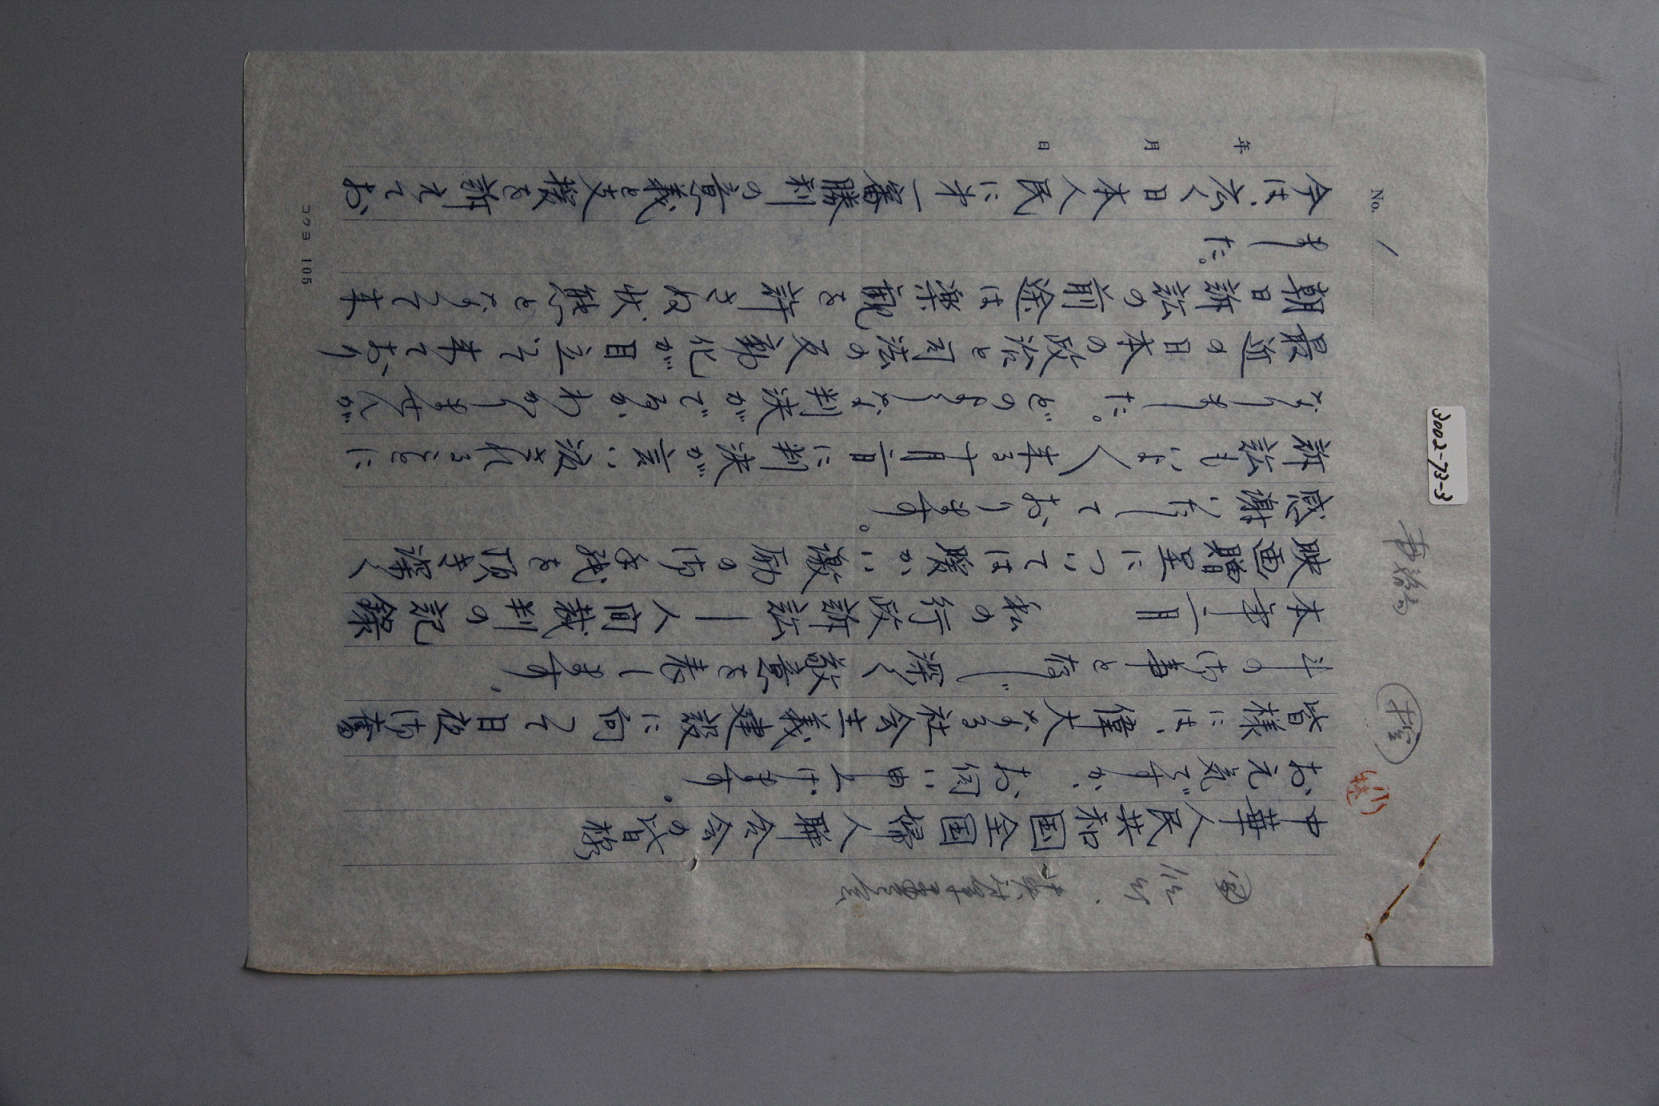 No. 1
年 月 日
3002-73-3
中華人民共和国全国婦人聯合会の皆様
お元気ですか、お伺い申上げます。
皆様には、偉大なる社会主義建設に向って日夜御奮
斗の御事と存じ、深く敬意を表します。
本年一月 私の行政訴訟―人間裁判の記録
映画贈呈については暖かい激励の御手紙を頂き深く
感謝いたしております。
訴訟もいよ〱来る十月 日に判決が言い渡されることに
なりました。どのような判決がでるかわかりませんが
最近の日本の政治と司法の反動化が目立って来ており、
朝日訴訟の前途は楽観を許さぬ状態となって来
ました。
今は、広く日本人民に才一審勝利の意義と支援を訴えてお
コクヨ 105